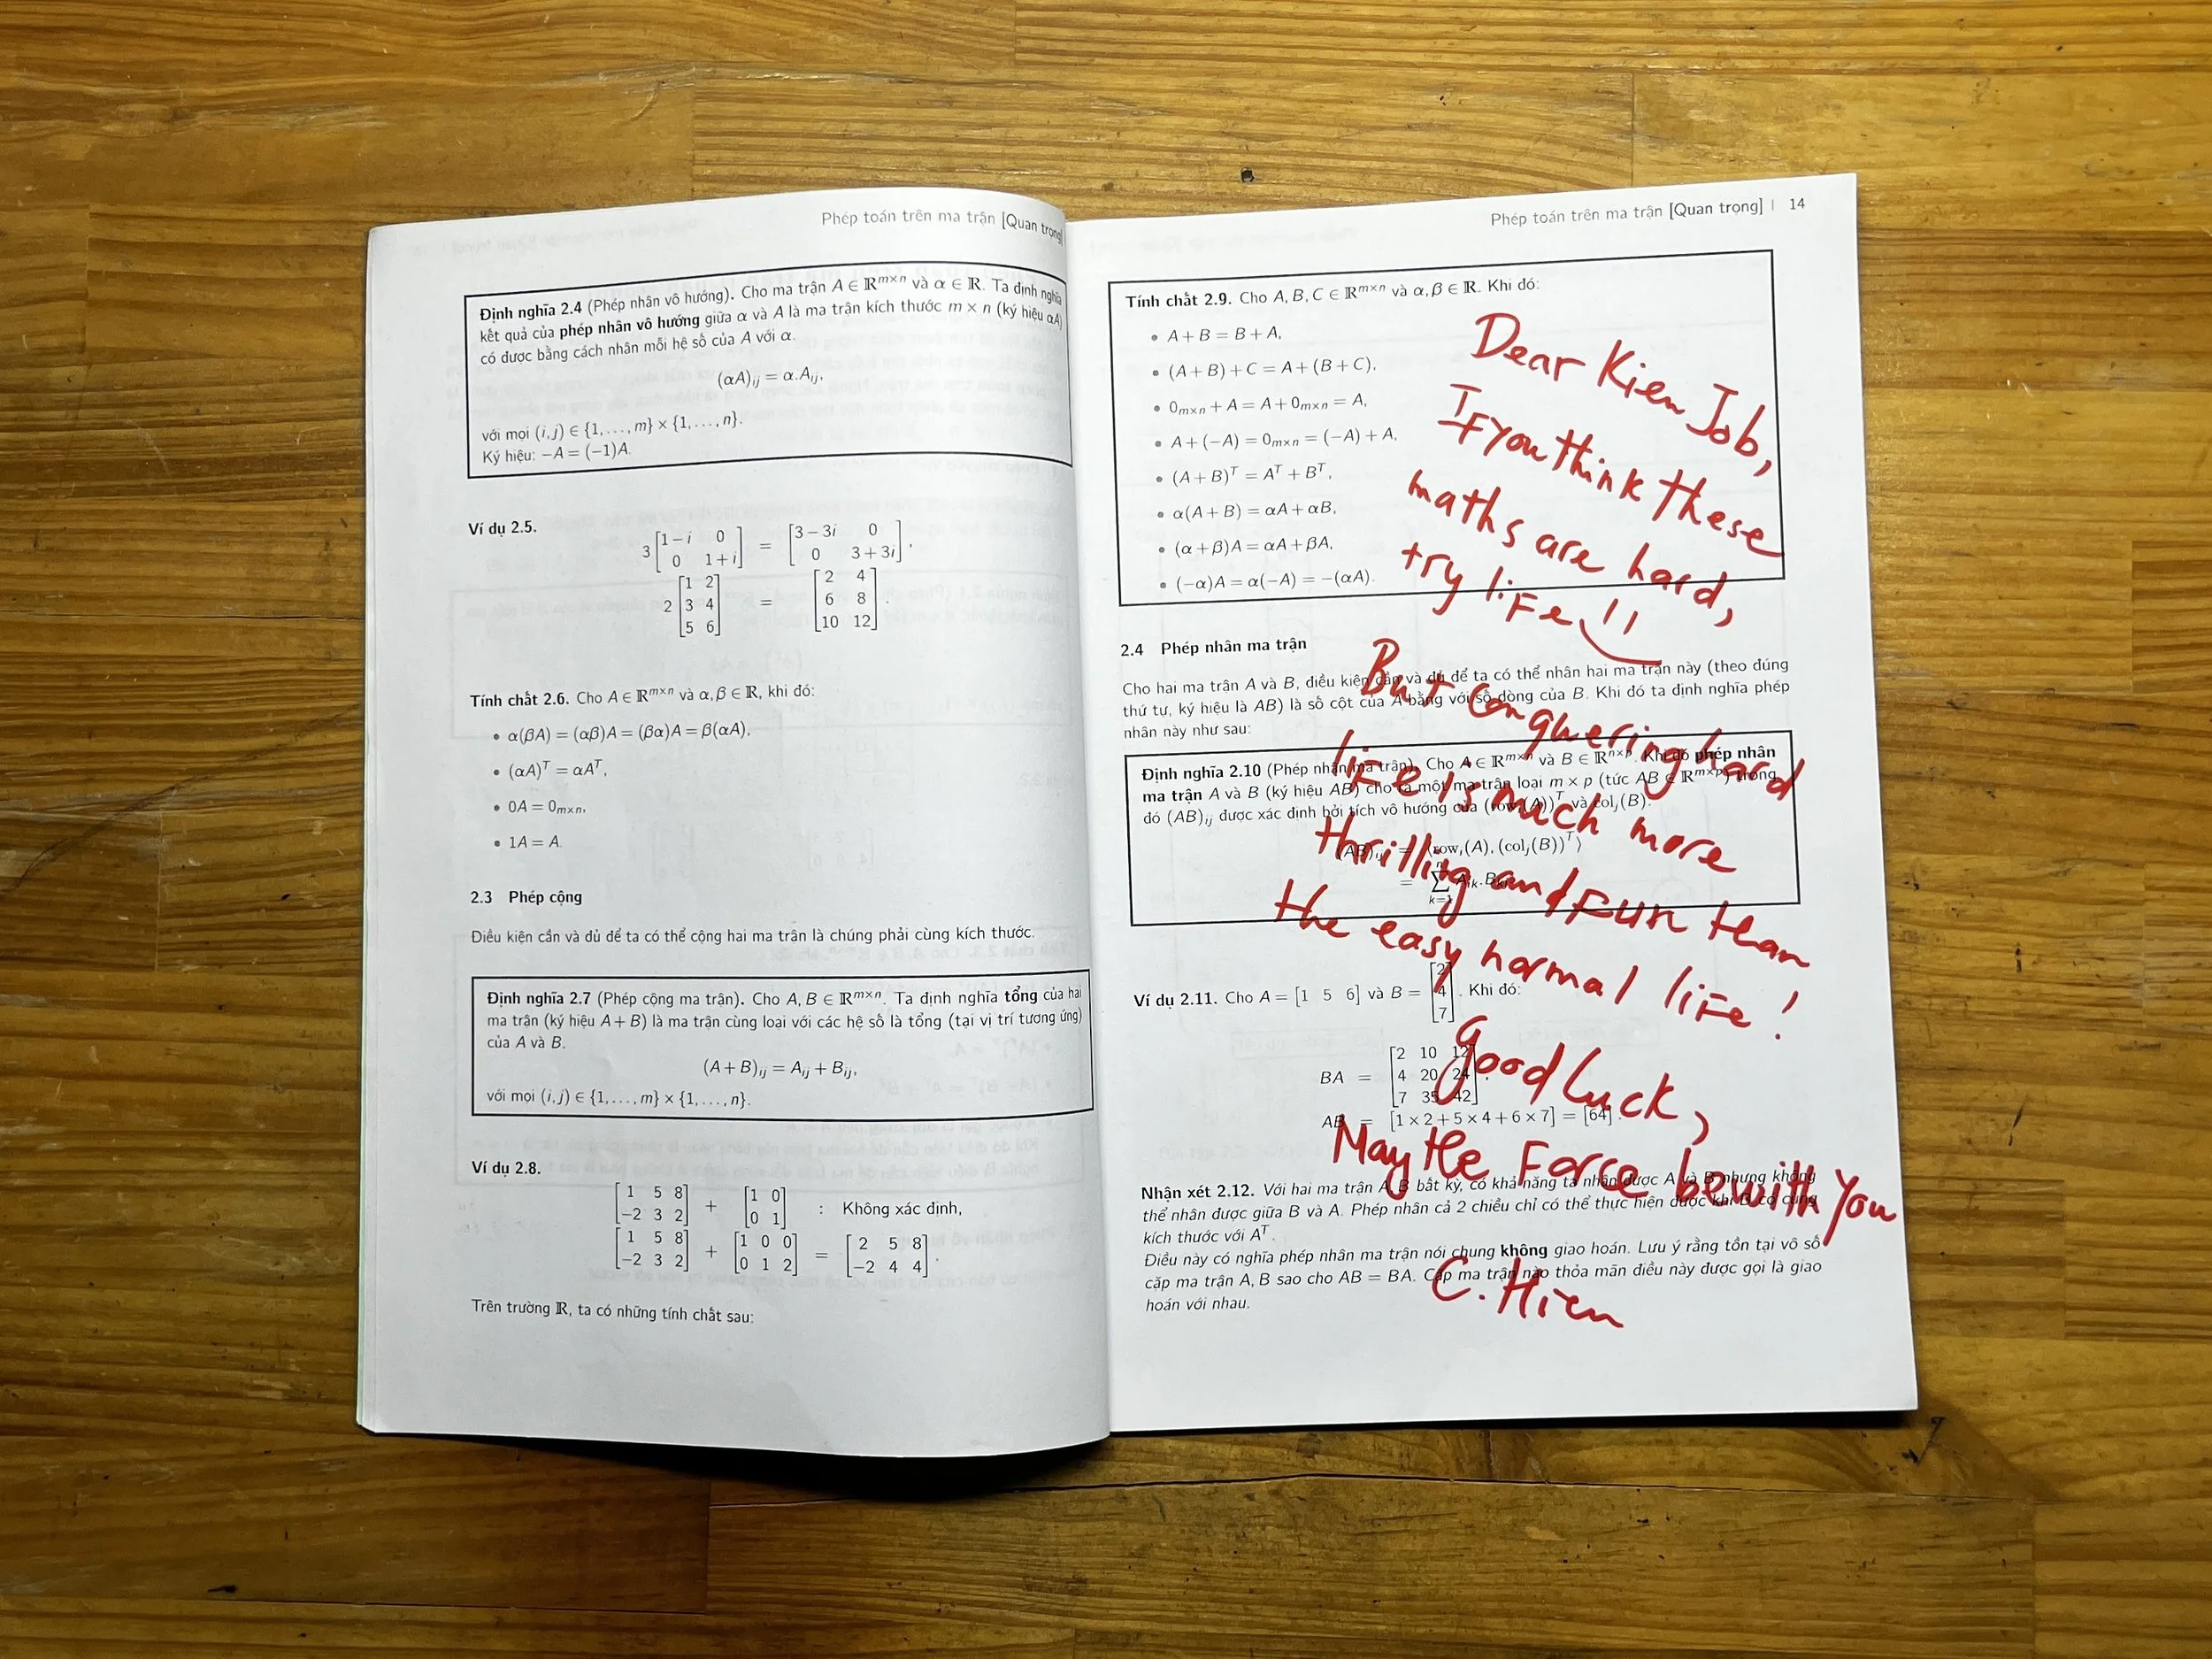 Phép toán trên ma trận [Quan trọng]
Định nghĩa 2.4 (Phép nhân vô hướng). Cho ma trận A ∈ ℝᵐˣⁿ và α ∈ ℝ. Ta định nghĩa
kết quả của phép nhân vô hướng giữa α và A là ma trận kích thước m × n (ký hiệu αA)
có được bằng cách nhân mỗi hệ số của A với α.
(αA)ᵢⱼ = α.Aᵢⱼ,
với mọi (i,j) ∈ {1,...,m} × {1,...,n}.
Ký hiệu: −A = (−1)A.
Ví dụ 2.5.
3 [1−i 0; 0 1+i] = [3−3i 0; 0 3+3i],
2 [1 2; 3 4; 5 6] = [2 4; 6 8; 10 12].
Tính chất 2.6. Cho A ∈ ℝᵐˣⁿ và α,β ∈ ℝ, khi đó:
• α(βA) = (αβ)A = (βα)A = β(αA),
• (αA)ᵀ = αAᵀ,
• 0A = 0ₘₓₙ,
• 1A = A.
2.3 Phép cộng
Điều kiện cần và đủ để ta có thể cộng hai ma trận là chúng phải cùng kích thước.
Định nghĩa 2.7 (Phép cộng ma trận). Cho A,B ∈ ℝᵐˣⁿ. Ta định nghĩa tổng của hai
ma trận (ký hiệu A + B) là ma trận cùng loại với các hệ số là tổng (tại vị trí tương ứng)
của A và B.
(A+B)ᵢⱼ = Aᵢⱼ + Bᵢⱼ,
với mọi (i,j) ∈ {1,...,m} × {1,...,n}.
Ví dụ 2.8.
[1 5 8; −2 3 2] + [1 0; 0 1] : Không xác định,
[1 5 8; −2 3 2] + [1 0 0; 0 1 2] = [2 5 8; −2 4 4].
Trên trường ℝ, ta có những tính chất sau:
Phép toán trên ma trận [Quan trọng] | 14
Tính chất 2.9. Cho A,B,C ∈ ℝᵐˣⁿ và α,β ∈ ℝ. Khi đó:
• A+B = B+A,
• (A+B)+C = A+(B+C),
• 0ₘₓₙ + A = A + 0ₘₓₙ = A,
• A+(−A) = 0ₘₓₙ = (−A)+A,
• (A+B)ᵀ = Aᵀ + Bᵀ,
• α(A+B) = αA + αB,
• (α+β)A = αA + βA,
• (−α)A = α(−A) = −(αA).
2.4 Phép nhân ma trận
Cho hai ma trận A và B, điều kiện cần và đủ để ta có thể nhân hai ma trận này (theo đúng
thứ tự, ký hiệu là AB) là số cột của A bằng với số dòng của B. Khi đó ta định nghĩa phép
nhân này như sau:
Định nghĩa 2.10 (Phép nhân ma trận). Cho A ∈ ℝᵐˣⁿ và B ∈ ℝⁿˣᵖ. Khi đó phép nhân
ma trận A và B (ký hiệu AB) cho ta một ma trận loại m × p (tức AB ∈ ℝᵐˣᵖ) trong
đó (AB)ᵢⱼ được xác định bởi tích vô hướng của (rowᵢ(A))ᵀ và colⱼ(B).
(AB)ᵢⱼ = ⟨rowᵢ(A),(colⱼ(B))ᵀ⟩
= ∑ₖ₌₁ⁿ Aᵢₖ.Bₖⱼ
Ví dụ 2.11. Cho A = [1 5 6] và B = [2; 4; 7]. Khi đó:
BA = [2 10 12; 4 20 24; 7 35 42],
AB = [1×2+5×4+6×7] = [64].
Nhận xét 2.12. Với hai ma trận A, B bất kỳ, có khả năng ta nhân được A và B nhưng không
thể nhân được giữa B và A. Phép nhân cả 2 chiều chỉ có thể thực hiện được khi B có cùng
kích thước với Aᵀ.
Điều này có nghĩa phép nhân ma trận nói chung không giao hoán. Lưu ý rằng tồn tại vô số
cặp ma trận A,B sao cho AB = BA. Cặp ma trận nào thỏa mãn điều này được gọi là giao
hoán với nhau.
Dear Kien Job,
If you think these
maths are hard,
try life
But conquering hard
life is much more
thrilling and fun than
the easy normal life!
Good Luck,
May the Force be with You
C.Hien